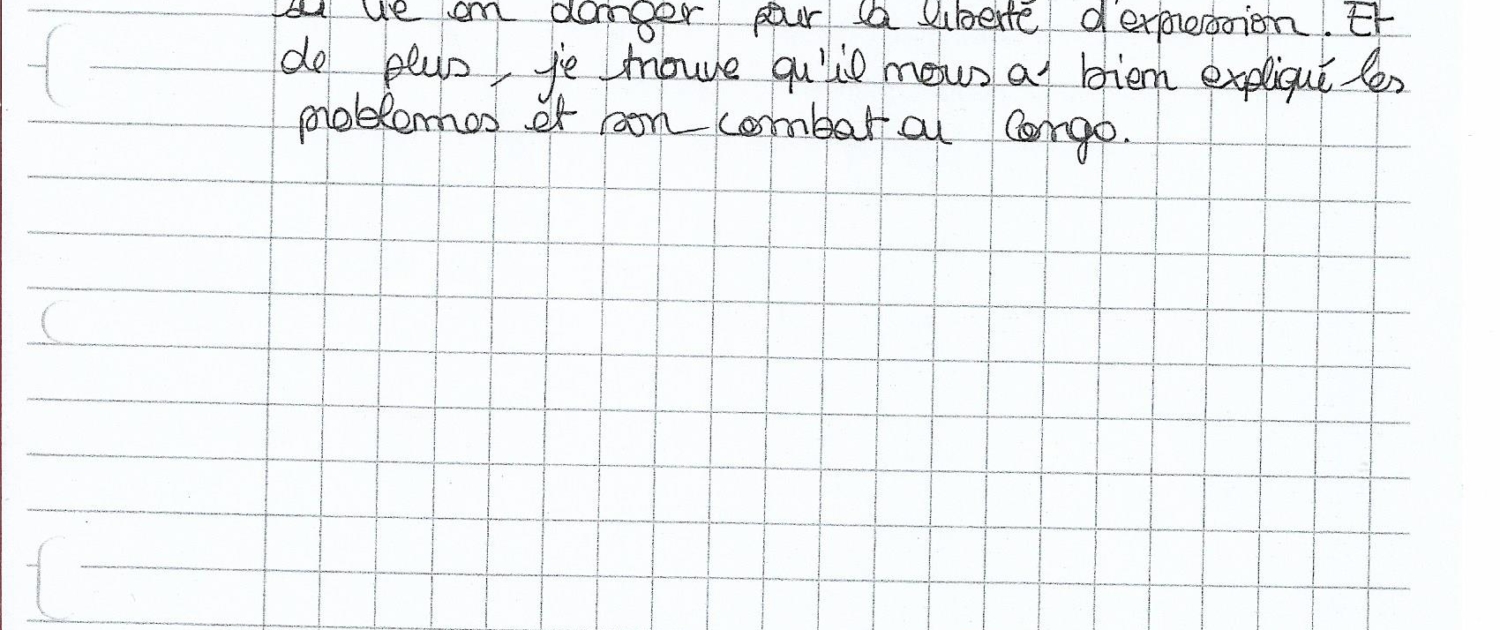 sa vie en danger pour la liberté d'expression. Et
de plus, je trouve qu'il nous a bien expliqué les
problemes et son combat au Congo.